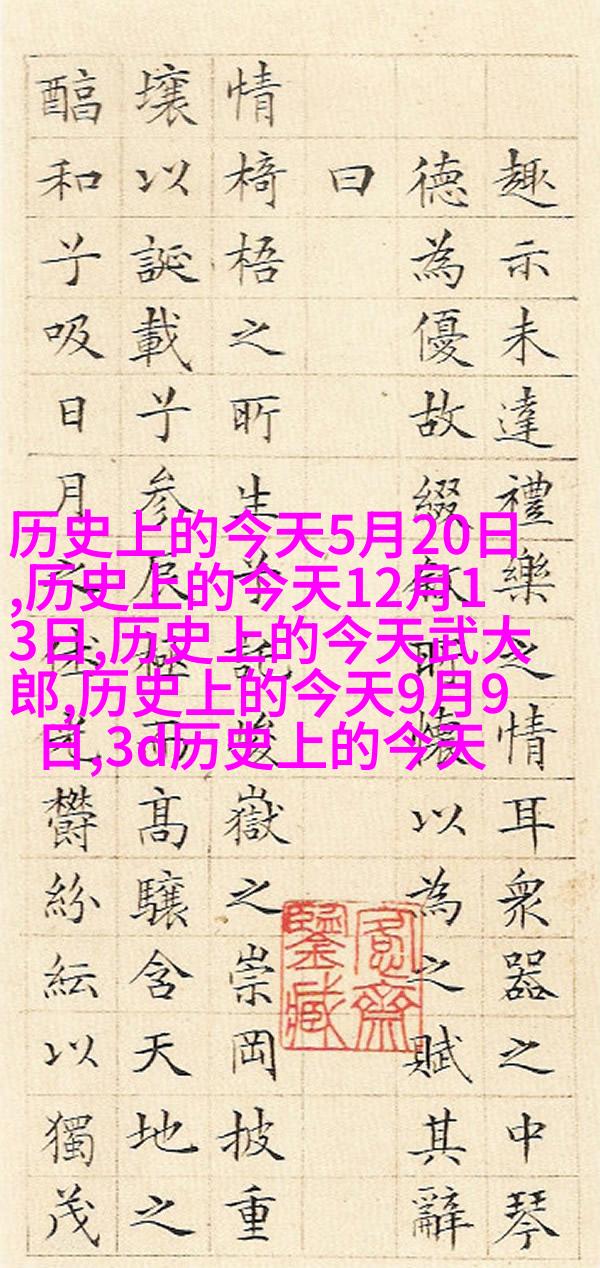 趣示未達禮樂之情耳衆器之中琴
德為優故綴敘所懷以為之賦其辭
曰
情椅梧之所生兮託峻嶽之崇岡披重
壤以誕載兮參辰極而髙驤含天地之
醕和兮吸日月之休光鬱紛紜以獨茂
愙齋
鑒藏
历史上的今天5月20日
,历史上的今天12月1
3日,历史上的今天武大
郎,历史上的今天9月9
日,3d历史上的今天